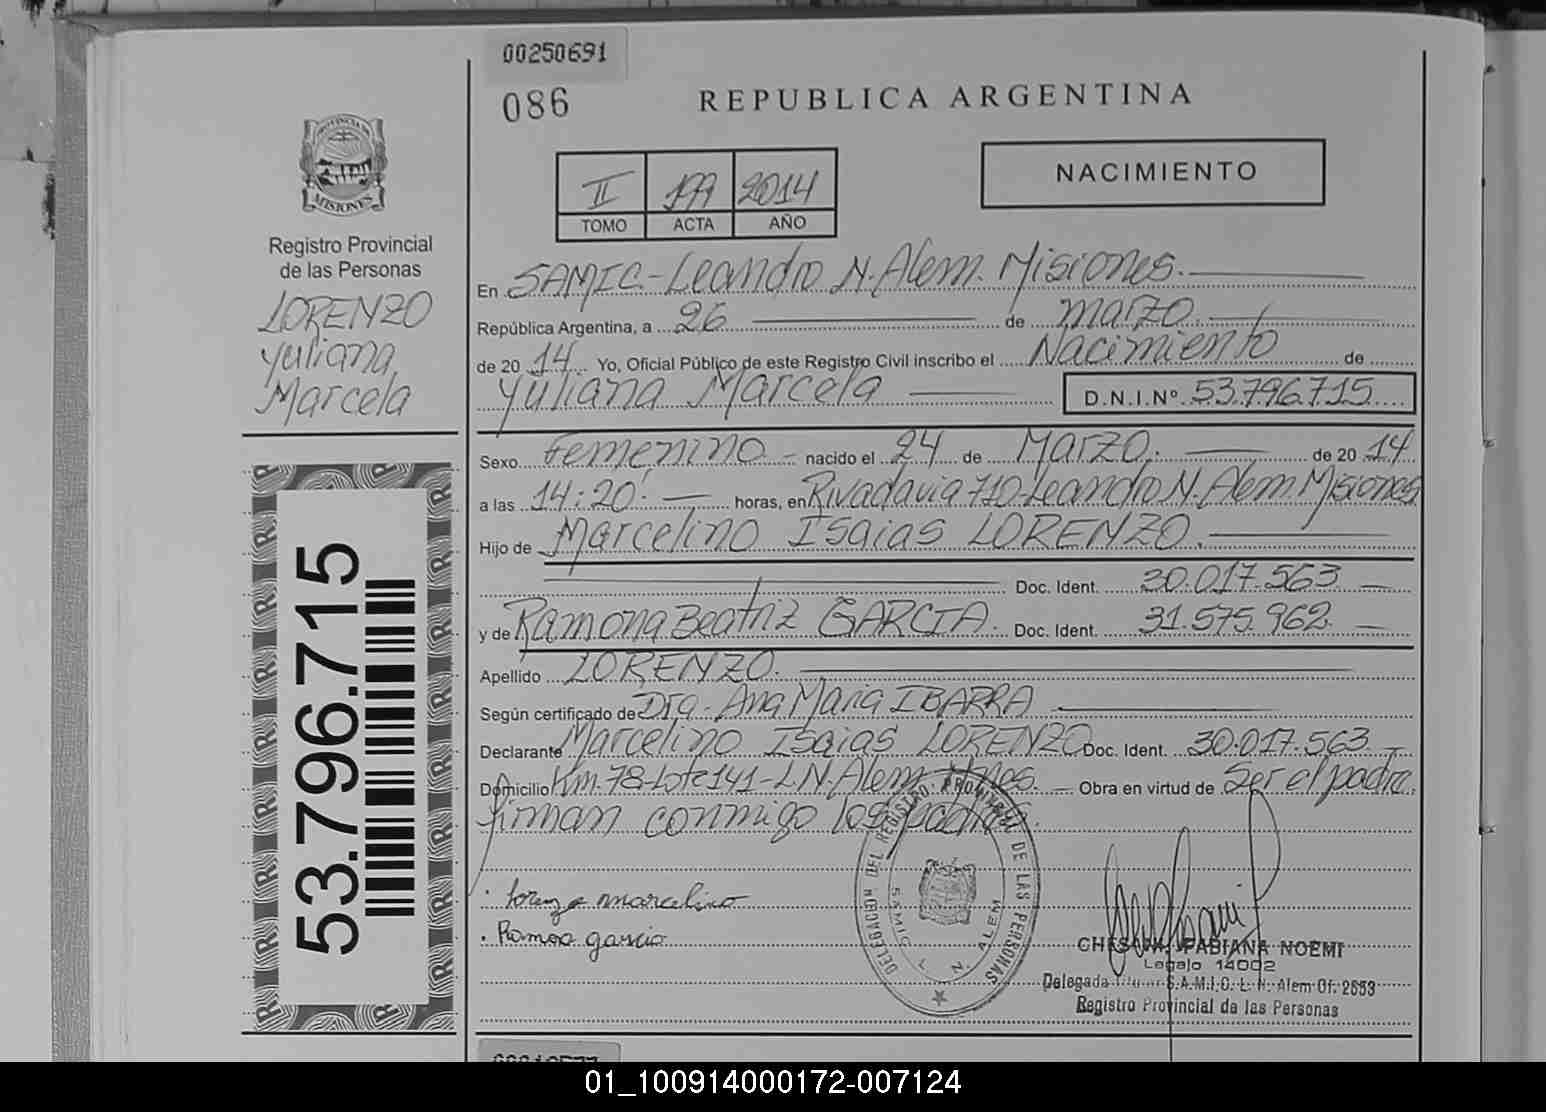 00250691
086
REPUBLICA ARGENTINA
NACIMIENTO
II 199 2014
TOMO ACTA AÑO
PROVINCIA DE
MISIONES
Registro Provincial
de las Personas
LORENZO
Yuliana
Marcela
53.796.715
En SAMIC-Leandro N. Alem. Misiones.
República Argentina, a 26 de marzo
de 2014 Yo, Oficial Público de este Registro Civil inscribo el Nacimiento de
Yuliana Marcela D.N.I.Nº 53.796.715
Sexo Femenino - nacido el 24 de Marzo. de 2014
a las 14:20' horas, en Rivadavia 710-Leandro N. Alem. Misiones
Hijo de Marcelino Isaias LORENZO.
Doc. Ident. 30.017.563
y de Ramona Beatriz GARCIA. Doc. Ident. 31.575.962
Apellido LORENZO.
Según certificado de Dra. Ana Maria IBARRA
Declarante Marcelino Isaias LORENZO Doc. Ident. 30.017.563
Domicilio Km. 78-Lote 141-L.N. Alem Mnes. Obra en virtud de Ser el padre.
firman conmigo los padres.
DELEGACION DEL REGISTRO PROVINCIAL DE LAS PERSONAS
SAMIC L. N. ALEM
Lorenzo marcelino
Ramona garcia
FABIANA NOEMI
Legajo 14002
Delegada Titular S.A.M.I.C. L. N. Alem Of. 2653
Registro Provincial de las Personas
01_100914000172-007124